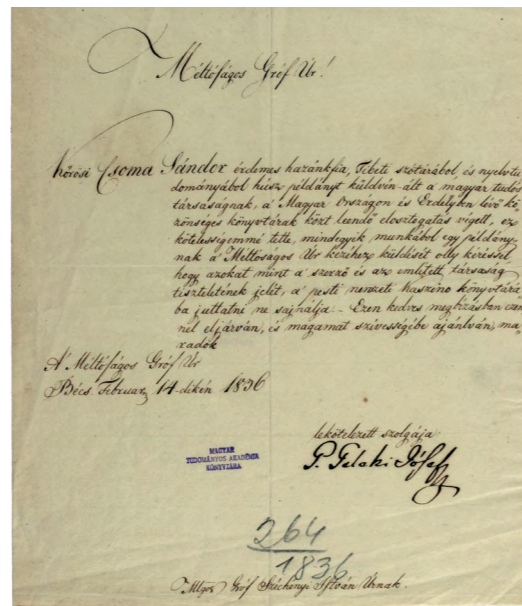 Méltóságos Gróf Úr!
Kőrösi Csoma Sándor érdemes hazánkfia, Tibeti szótárából, és nyelvtu
dományából húsz példányt küldvén által a magyar tudós
társaságnak, a Magyar Országon és Erdélyben lévő kö
zönséges könyvtárak közt leendő elosztogatás végett, ez
kötelességemmé tette, mindegyik munkából egy példány-
nak a Méltóságos Úr kezéhez küldését olly kéréssel
hogy azokat mint a szerző és az említett társaság
tiszteletének jelét, a pesti nemzeti kaszinó könyvtárá
ba juttatni ne sajnálja. - Ezen kedves megbizásban ezen
nel eljárván, és magamat szivességébe ajánlván, ma
radok
A' Méltóságos Gróf Úr
Bécs. Februar. 14-dikén 1836
lekötelezett szolgája
G. Teleki József
MAGYAR
TUDOMÁNYOS AKADÉMIA
KÖNYVTÁRA
264
1836
Mlgos Gróf Széchenyi István Úrnak.